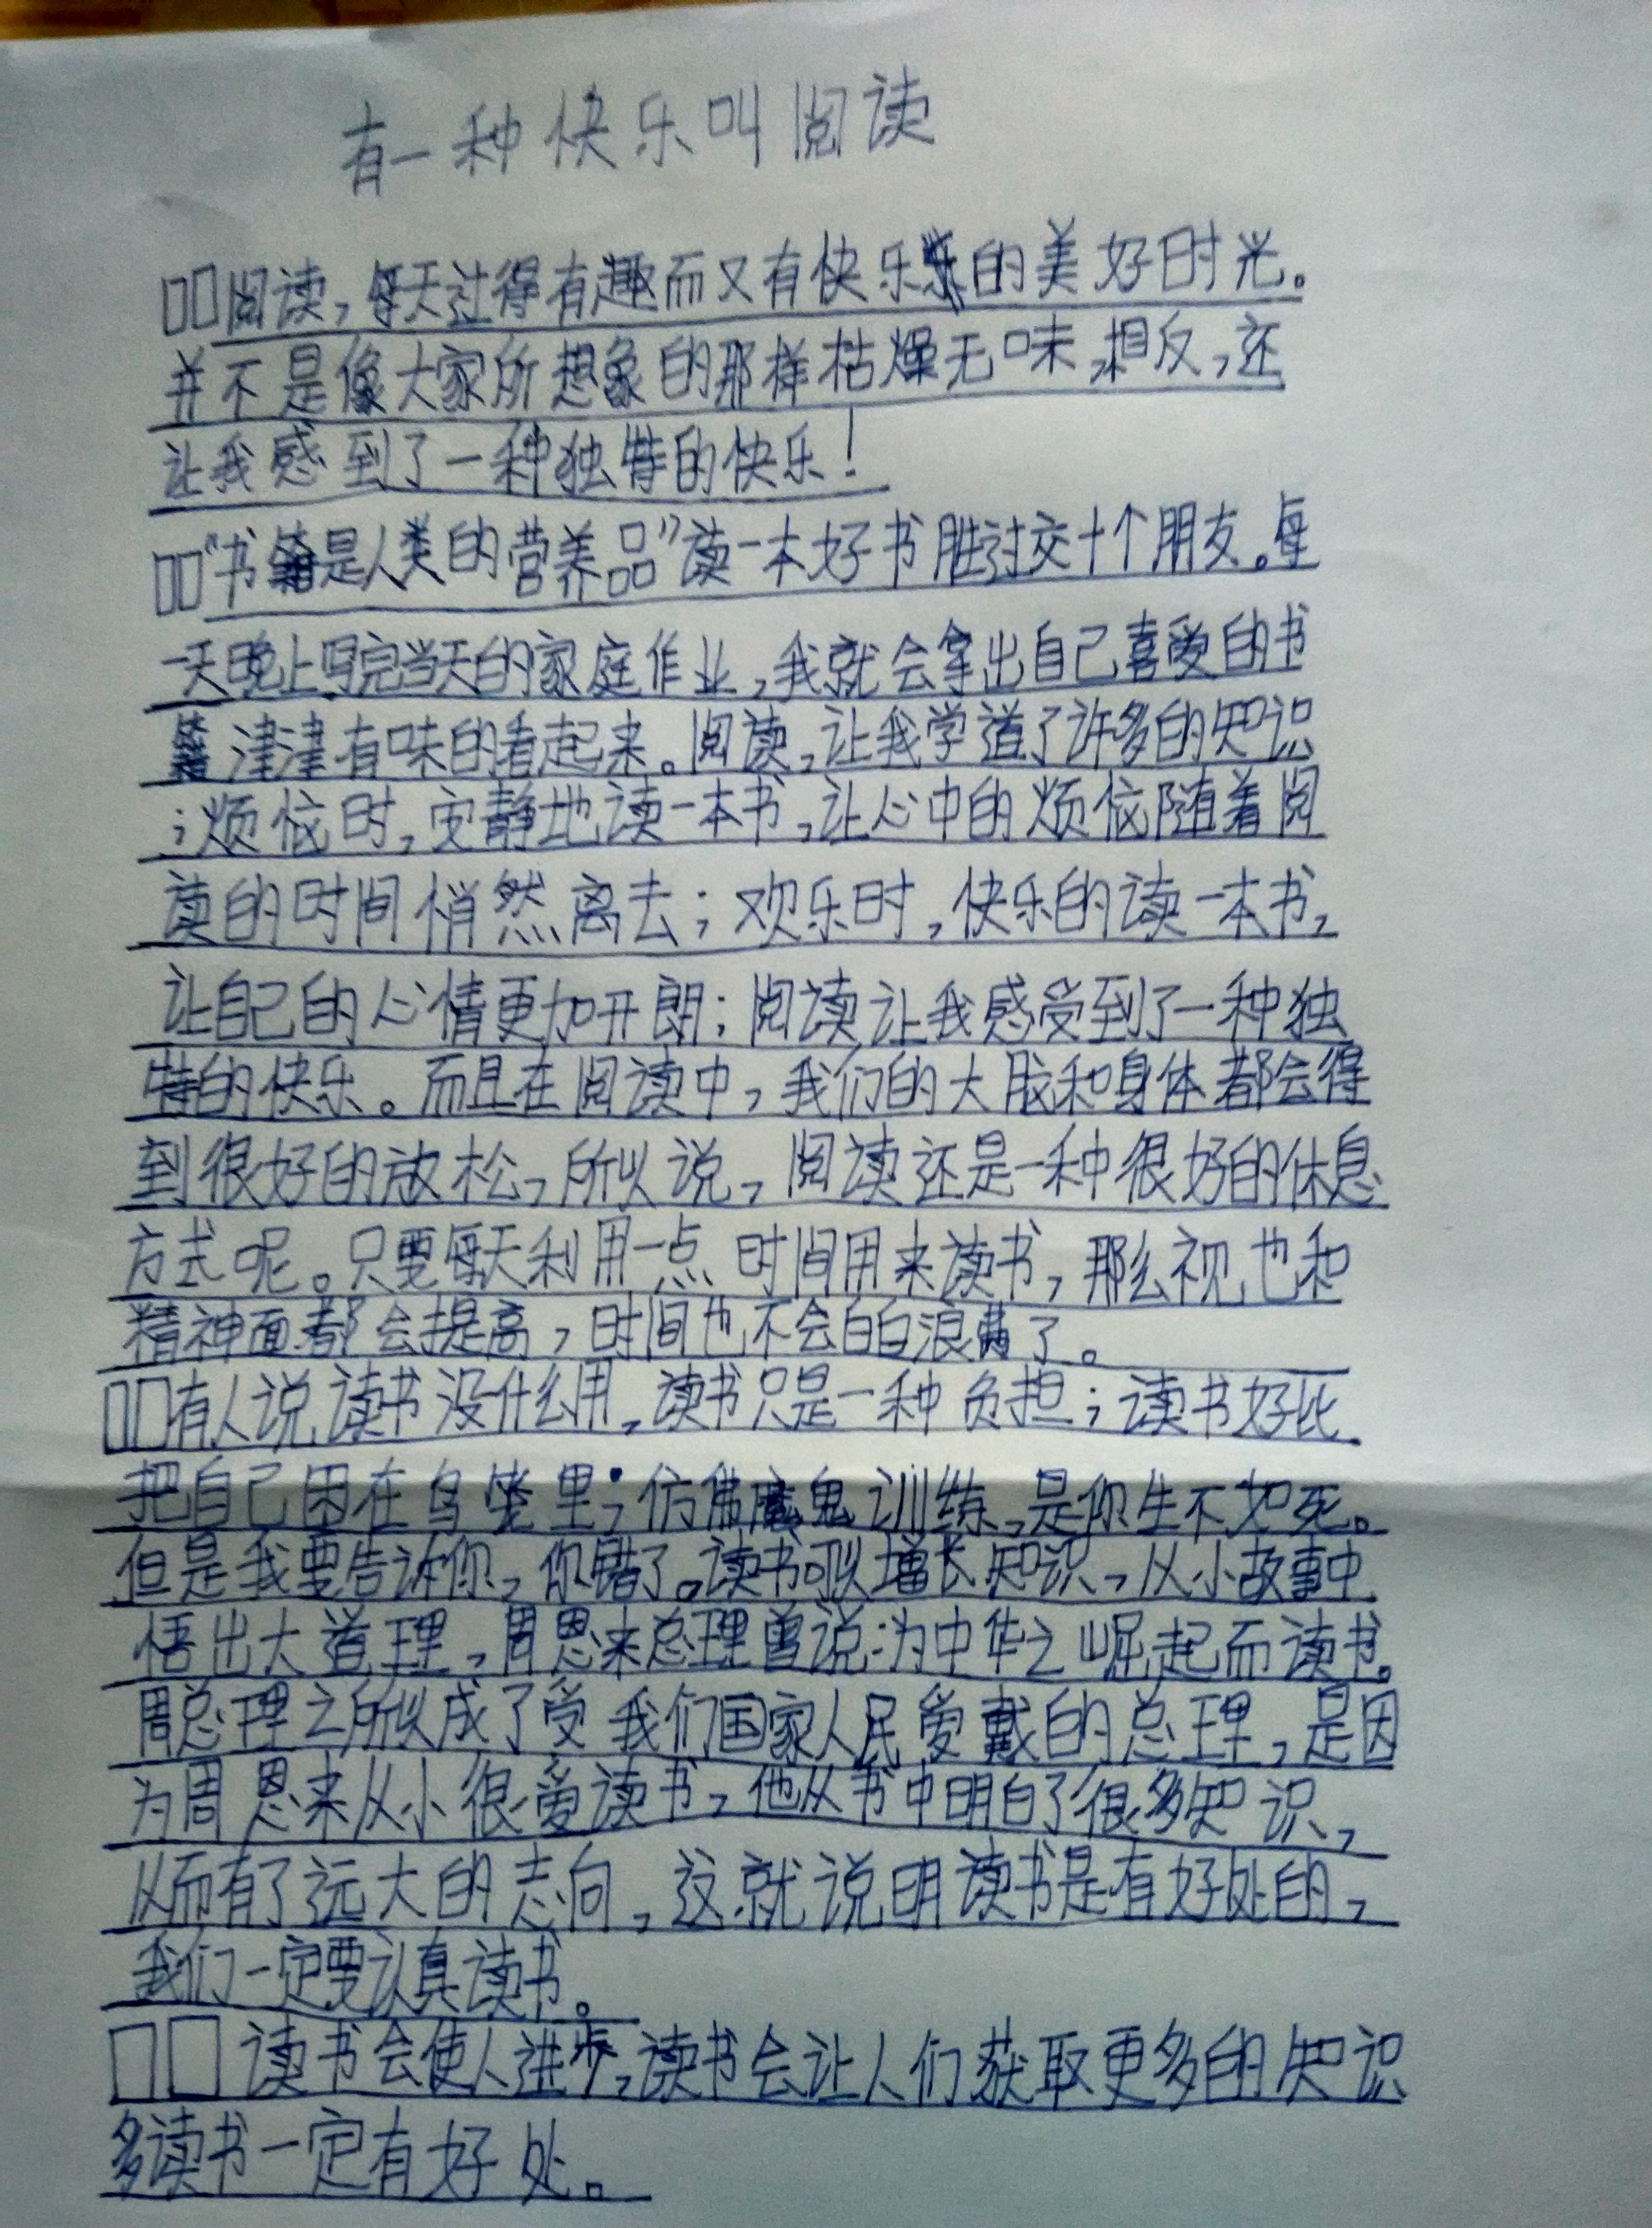 有一种快乐叫阅读
阅读，每天过得有趣而又有快乐的美好时光。
并不是像大家所想象的那样枯燥无味，相反，还
让我感到了一种独特的快乐！
“书籍是人类的营养品”读一本好书胜过交十个朋友。每
天晚上写完当天的家庭作业，我就会拿出自己喜爱的书
籍津津有味的看起来。阅读，让我学道了许多的知识
；烦恼时，安静地读一本书，让心中的烦恼随着阅
读的时间悄然离去；欢乐时，快乐的读一本书，
让自己的心情更加开朗；阅读让我感受到了一种独
特的快乐。而且在阅读中，我们的大脑和身体都会得
到很好的放松，所以说，阅读还是一种很好的休息
方式呢。只要每天利用一点时间用来读书，那么视也和
精神面都会提高，时间也不会白白浪费了。
有人说读书没什么用，读书只是一种负担；读书好比
把自己困在鸟笼里；仿佛魔鬼训练，是你生不如死。
但是我要告诉你，你错了。读书可以增长知识，从小故事中
悟出大道理，周恩来总理曾说：为中华之崛起而读书。
周总理之所以成了受我们国家人民爱戴的总理，是因
为周恩来从小很爱读书，他从书中明白了很多知识，
从而有了远大的志向，这就说明读书是有好处的，
我们一定要认真读书。
读书会使人进步，读书会让人们获取更多的知识
多读书一定有好处。